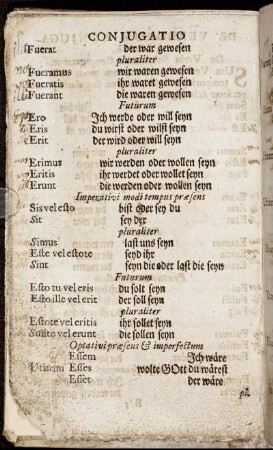 CONJUGATIO
Fuerat der war gewesen
pluraliter
Fueramus wir waren gewesen
Fueratis ihr waret gewesen
Fuerant die waren gewesen
Futurum
Ero Jch werde oder will seyn
Eris du wirst oder wilst seyn
Erit der wird oder will seyn
pluraliter
Erimus wir werden oder wollen seyn
Eritis ihr werdet oder wollet seyn
Erunt die werden oder wollen seyn
Imperativi modi tempus præsens
Sis vel esto bist oder sey du
Sit sey der
pluraliter
Simus last uns seyn
Este vel estote seyd ihr
Sint seyn die oder last die seyn
Futurum
Esto tu vel eris du solt seyn
Esto ille vel erit der soll seyn
pluraliter
Estote vel eritis ihr sollet seyn
Sunto vel erunt die sollen seyn
Optativi præsens & imperfectum
Essem Jch wäre
Utinam Esses wolte GOtt du wärest
Esset der wäre
pl.